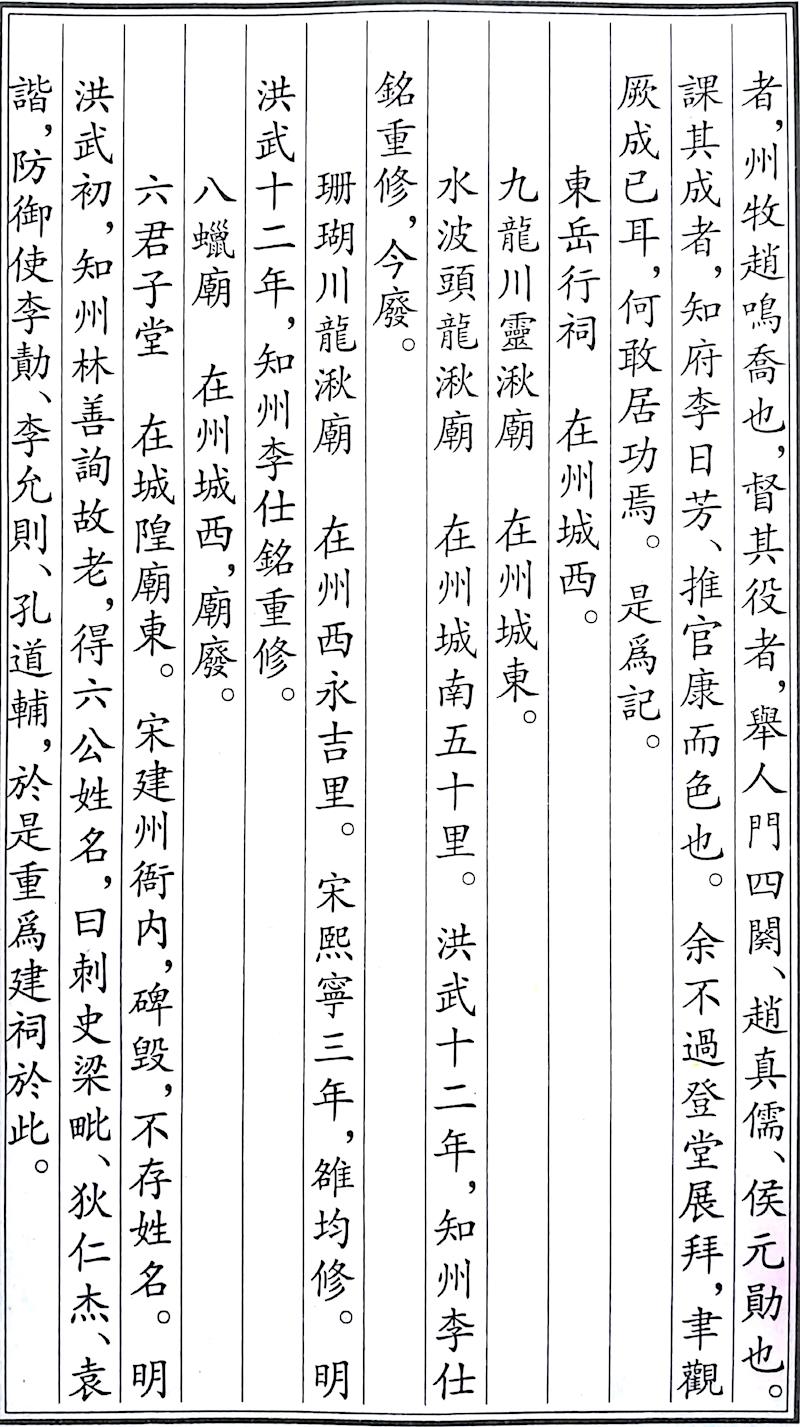 者，州牧趙鳴喬也，督其役者，舉人門四闋、趙真儒、侯元勛也。
課其成者，知府李日芳、推官康而色也。余不過登堂展拜，聿觀
厥成已耳，何敢居功焉。是爲記。
東岳行祠　在州城西。
九龍川靈湫廟　在州城東。
水波頭龍湫廟　在州城南五十里。洪武十二年，知州李仕
銘重修，今廢。
珊瑚川龍湫廟　在州西永吉里。宋熙寧三年，雒均修。明
洪武十二年，知州李仕銘重修。
八蠟廟　在州城西，廟廢。
六君子堂　在城隍廟東。宋建州衙内，碑毁，不存姓名。明
洪武初，知州林善詢故老，得六公姓名，曰刺史梁毗、狄仁杰、袁
諧，防御使李勣、李允則、孔道輔，於是重爲建祠於此。